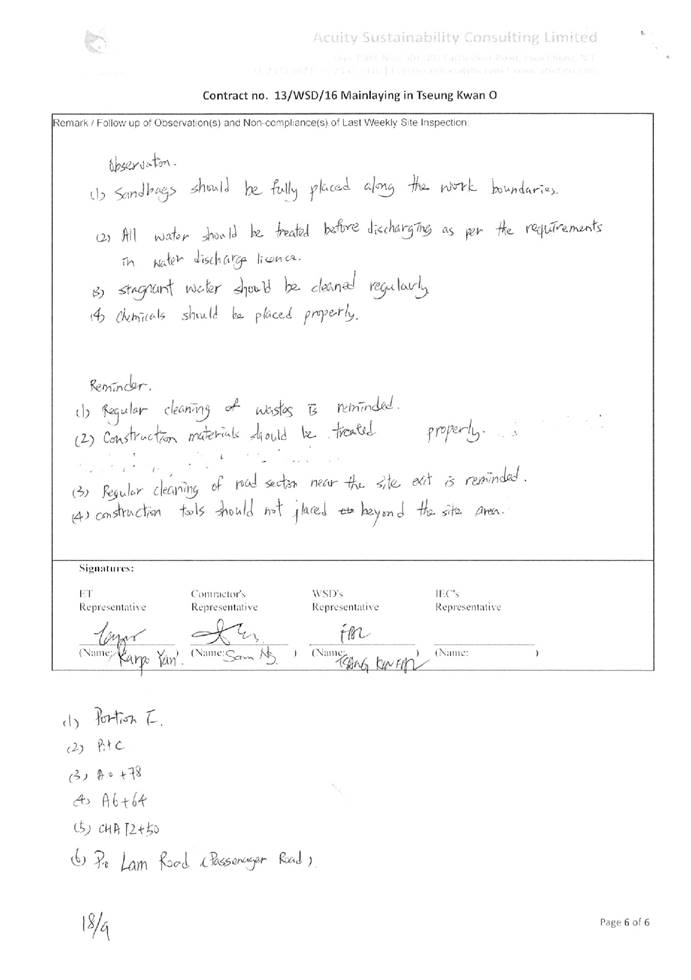 Acuity Sustainability Consulting Limited
Contract no. 13/WSD/16 Mainlaying in Tseung Kwan O
Remark / Follow up of Observation(s) and Non-compliance(s) of Last Weekly Site Inspection:
Observation.
(1) Sandbags should be fully placed along the work boundaries.
(2) All water should be treated before discharging as per the requirements
in water discharge licence.
(3) stagnant water should be cleaned regularly
(4) Chemicals should be placed properly.
Reminder.
(1) Regular cleaning of wastes is reminded.
(2) Construction materials should be treated properly.
(3) Regular cleaning of road section near the site exit is reminded.
(4) construction tools should not placed beyond the site area.
Signatures:
ET Contractor's WSD's IEC's
Representative Representative Representative Representative
(Name: Karpo Yan) (Name: Sam Ng) (Name: TSANG KWFAN) (Name: )
(1) Portion I.
(2) Pit C
(3) A0+78
(4) A6+64
(5) CHA12+50
(6) Po Lam Road (Passenager Road).
18/9
Page 6 of 6